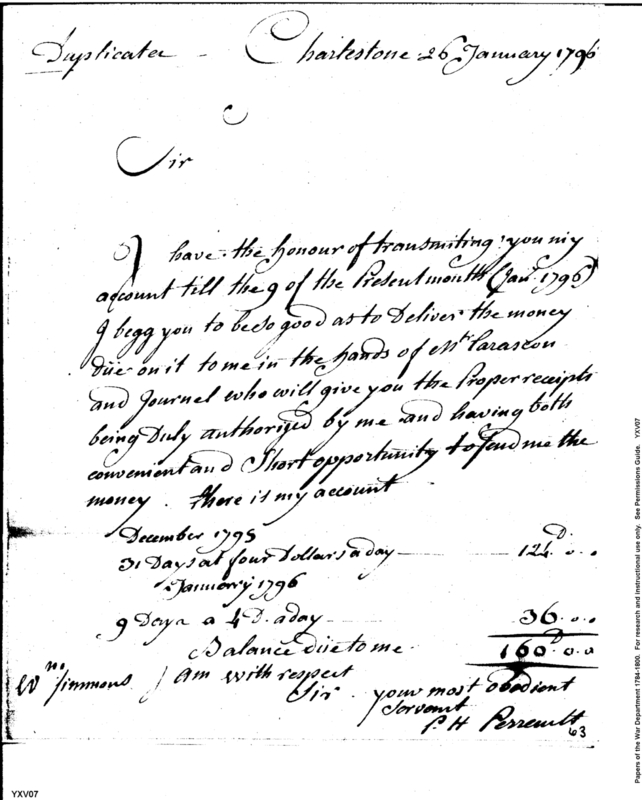 Duplicata - Charlestone 26 January 1796
Sir
I have the honour of transmiting you my
account till the 9 of the Present month (Janr. 1796)
J begg you to bee so good as to Deliver the money
düe on it to me in the hands of Mr. Parascon
and Journel who will give you the Proper receipts
being Duly authorized by me and having both
convenient and Short opportunity to send me the
money. there is my account
December 1795
31 Days at four Dollars a day — 124D. o. o
January 1796
9 Days a 4 D. a day — 36. o. o
Balance düe to me 160D. o. o
Wm. Simmons
J am with respect
Sir your most obedient
servant
P. H Perrault
63
YXV07
Papers of the War Department 1784-1800. For research and instructional use only. See Permissions Guide. YXV07